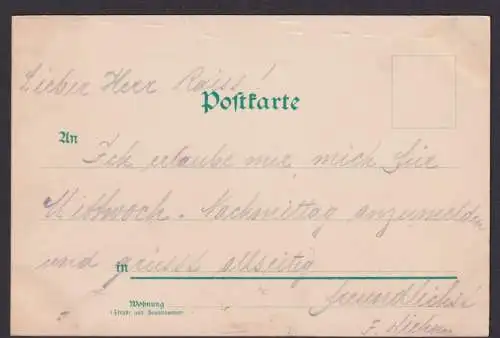 Lieber Herr Raiss!
Postkarte
An
Ich erlaube mir mich für
Mittwoch. Nachmittag anzumelden
und grüsst allseitig
in
freundlichst
Wohnung
(Straße und Hausnummer)
F.